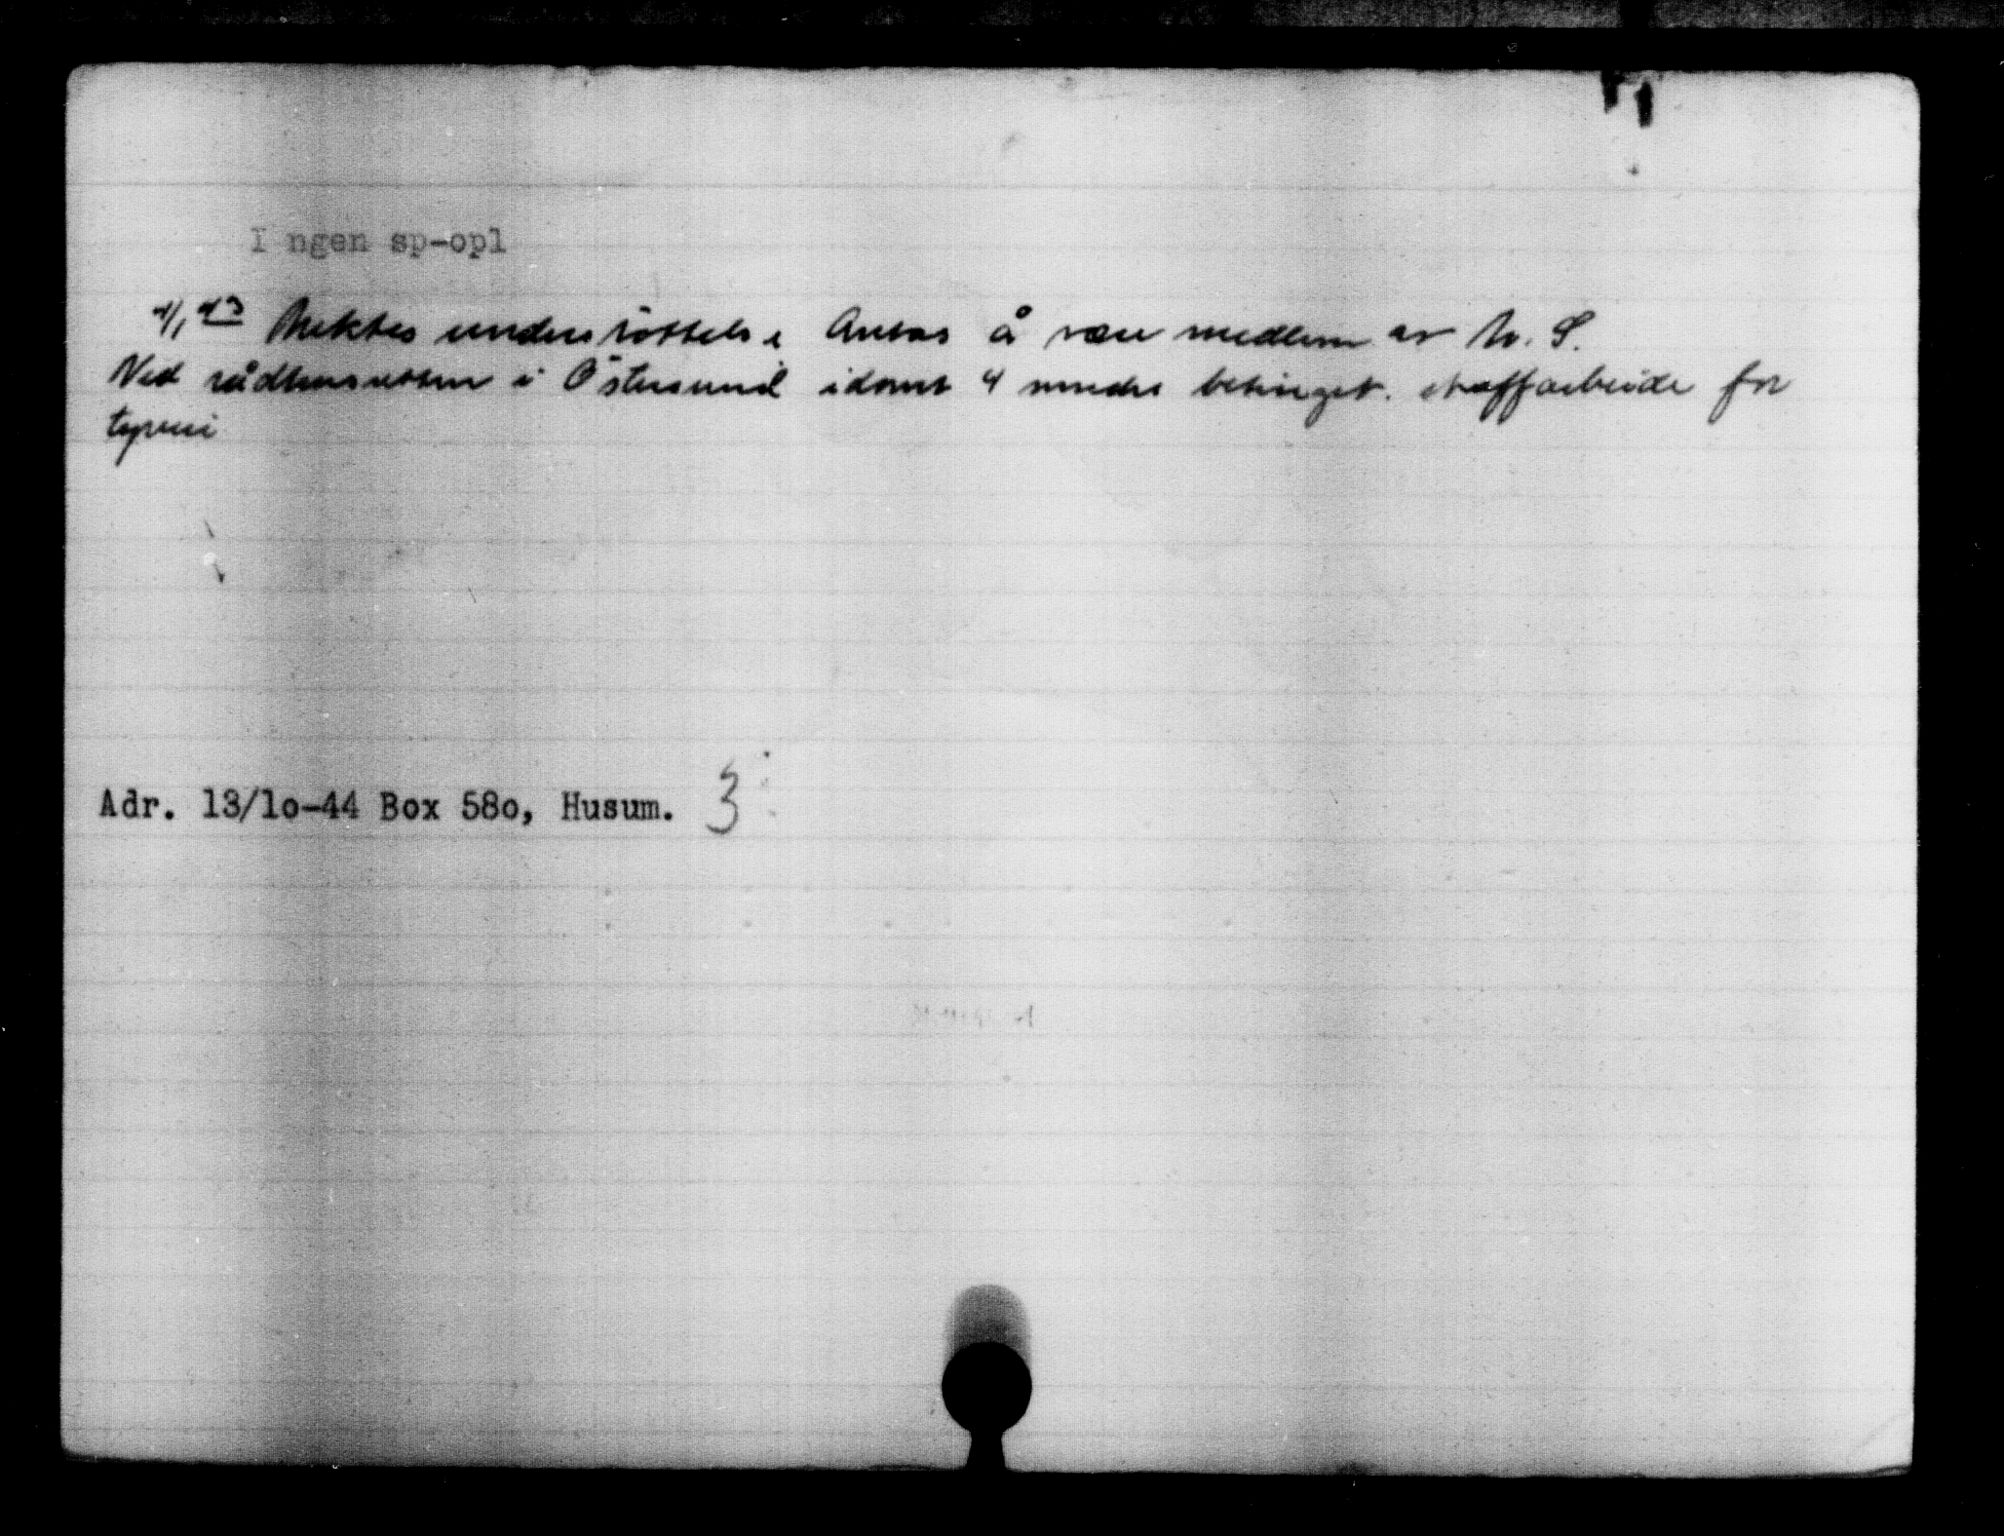 I ngen sp-opl
4/1 43 Nektes understöttelse Antas å være medlem av N. S.
Ved rådhusretten i Östersund idömt 4 mndrs betinget. straffarbeide for
tyveri
Adr. 13/1o-44 Box 58o, Husum. 3